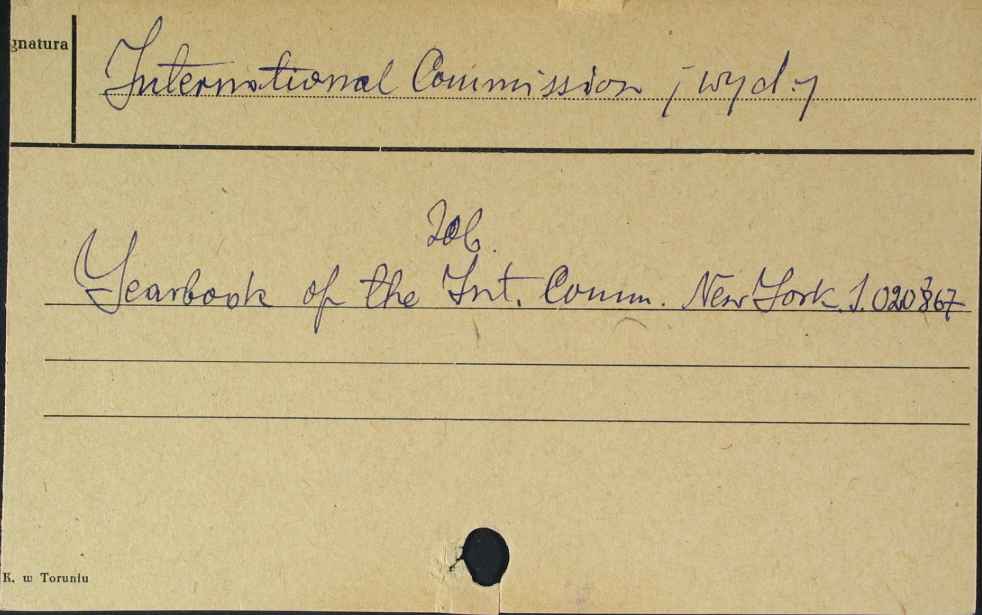 gnatura
International Commission /wyd./
Zob.
Yearbook of the Int. Comm. New York. S.020867
K. w Toruniu